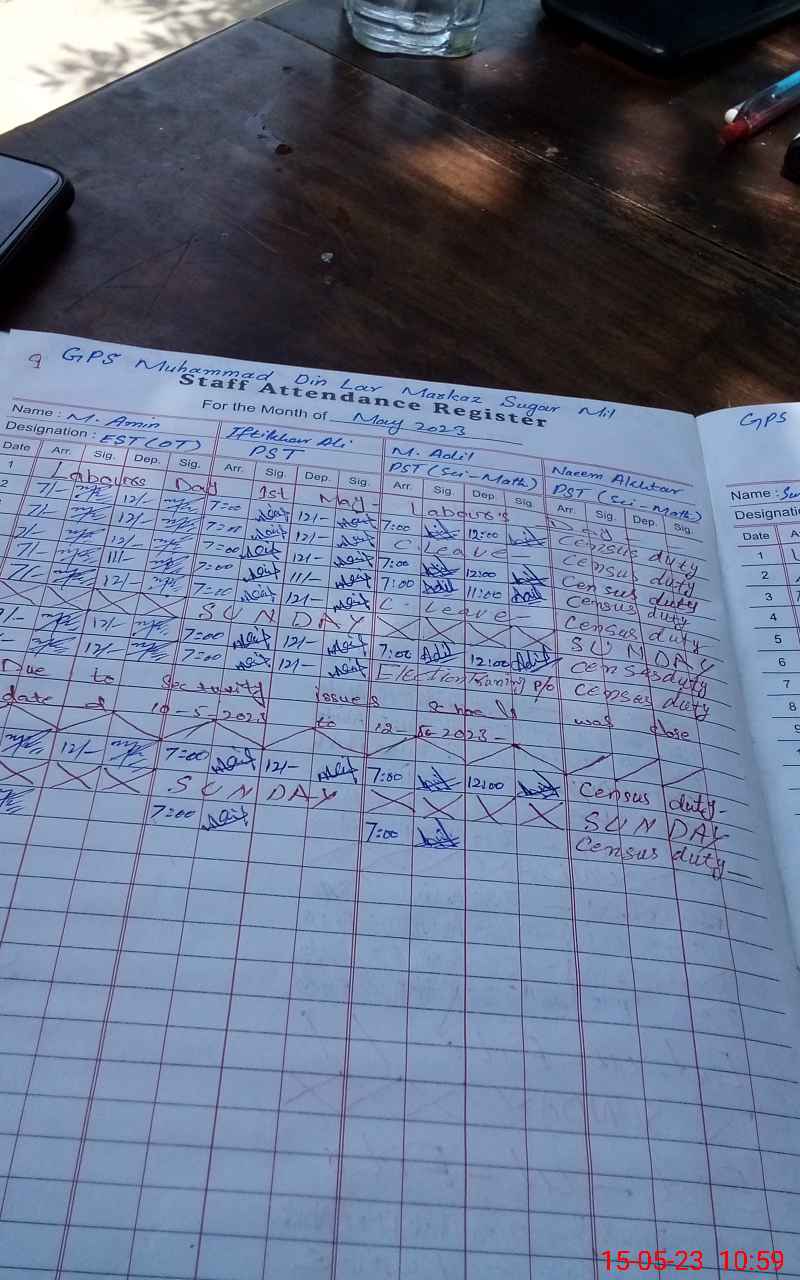 9 GPS Muhammad Din Lar Markaz Sugar Mil
Staff Attendance Register
For the Month of May 2023
Name : M. Amin Iftikhar Ali M. Adil Naeem Akhtar
Designation : EST (OT) PST PST (Sci-Math) PST (Sci-Math)
Date Arr. Sig. Dep. Sig. Arr. Sig. Dep. Sig. Arr. Sig Dep Sig. Arr. Sig. Dep. Sig.
1 Labours Day 1st May - Labour's Day -
2 7/- 12/- 7:00 12/- 7:00 12:00 Census duty
7/- 12/- 7:00 12/- C. Leave - Census duty
7/- 12/- 7:00 12/- 7:00 12:00 Census duty
7/- 11/- 7:00 11/- 7:00 11:00 Census duty
7/- 12/- 7:00 12/- C. Leave - Census duty
SUNDAY SUNDAY
7/- 12/- 7:00 12/- 7:00 Adil 12:00 Adil Census duty
12/- 7:00 12/- Census duty
Due to security issues was close
date of 10-5-2023 to 12-5-2023-
12/- 7:00 12/- 7:00 12:00 Census duty-
SUNDAY SUNDAY
7:00 7:00 Census duty-
GPS
Name :
Designati
Date A
1
2
3
4
5
6
7
8
15-05-23 10:59